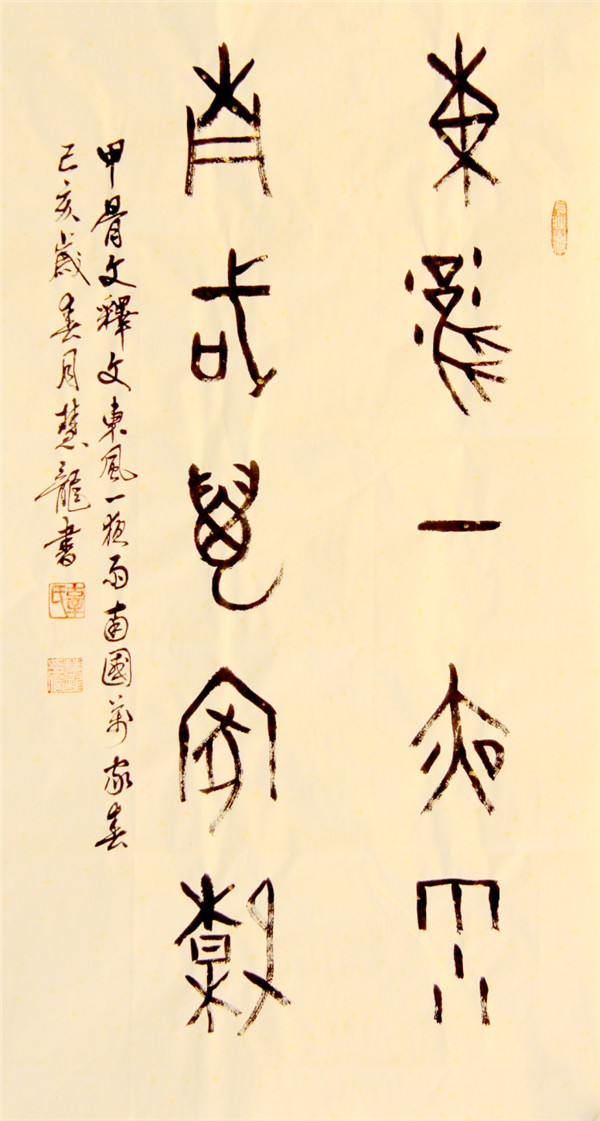 東風一夜雨
南國萬家春
甲骨文釋文東風一夜雨南國萬家春
己亥歲春月慧龍書